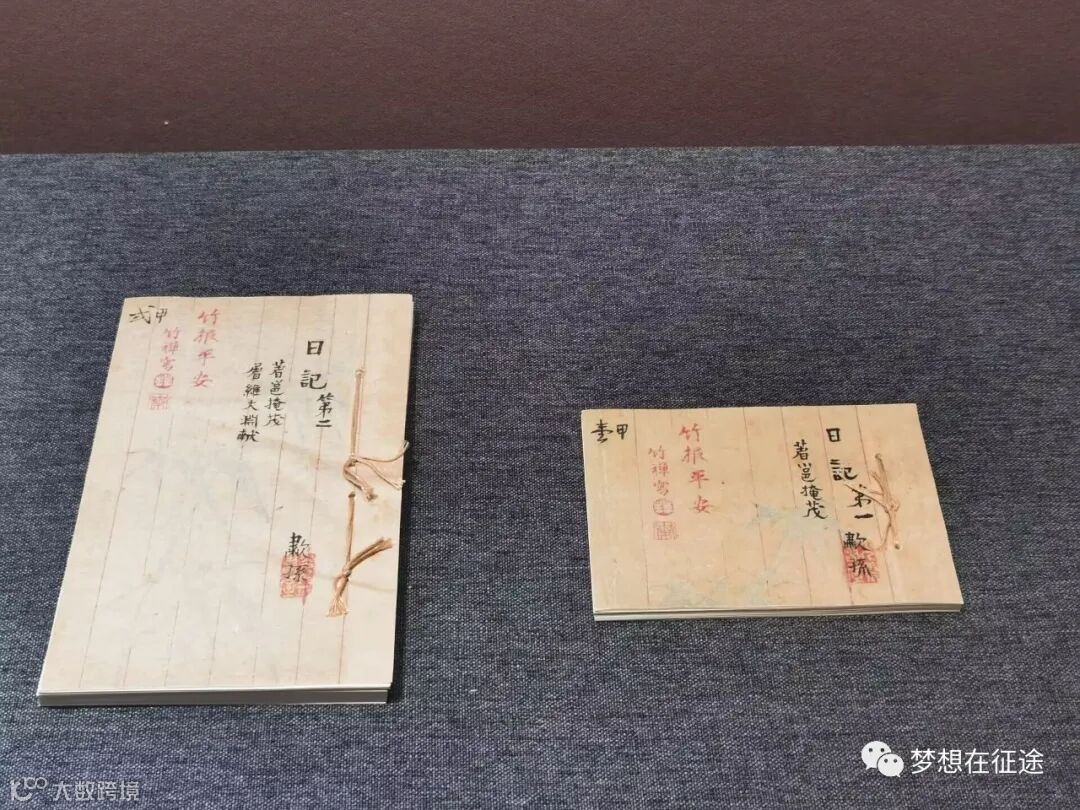 甲弍
竹報平安
竹禅寫
日記 第二
著邕掩茂
屠維大淵献
甲壹
竹報平安
竹禅寫
日記 第一
著邕掩茂
梦想在征途
大数跨境